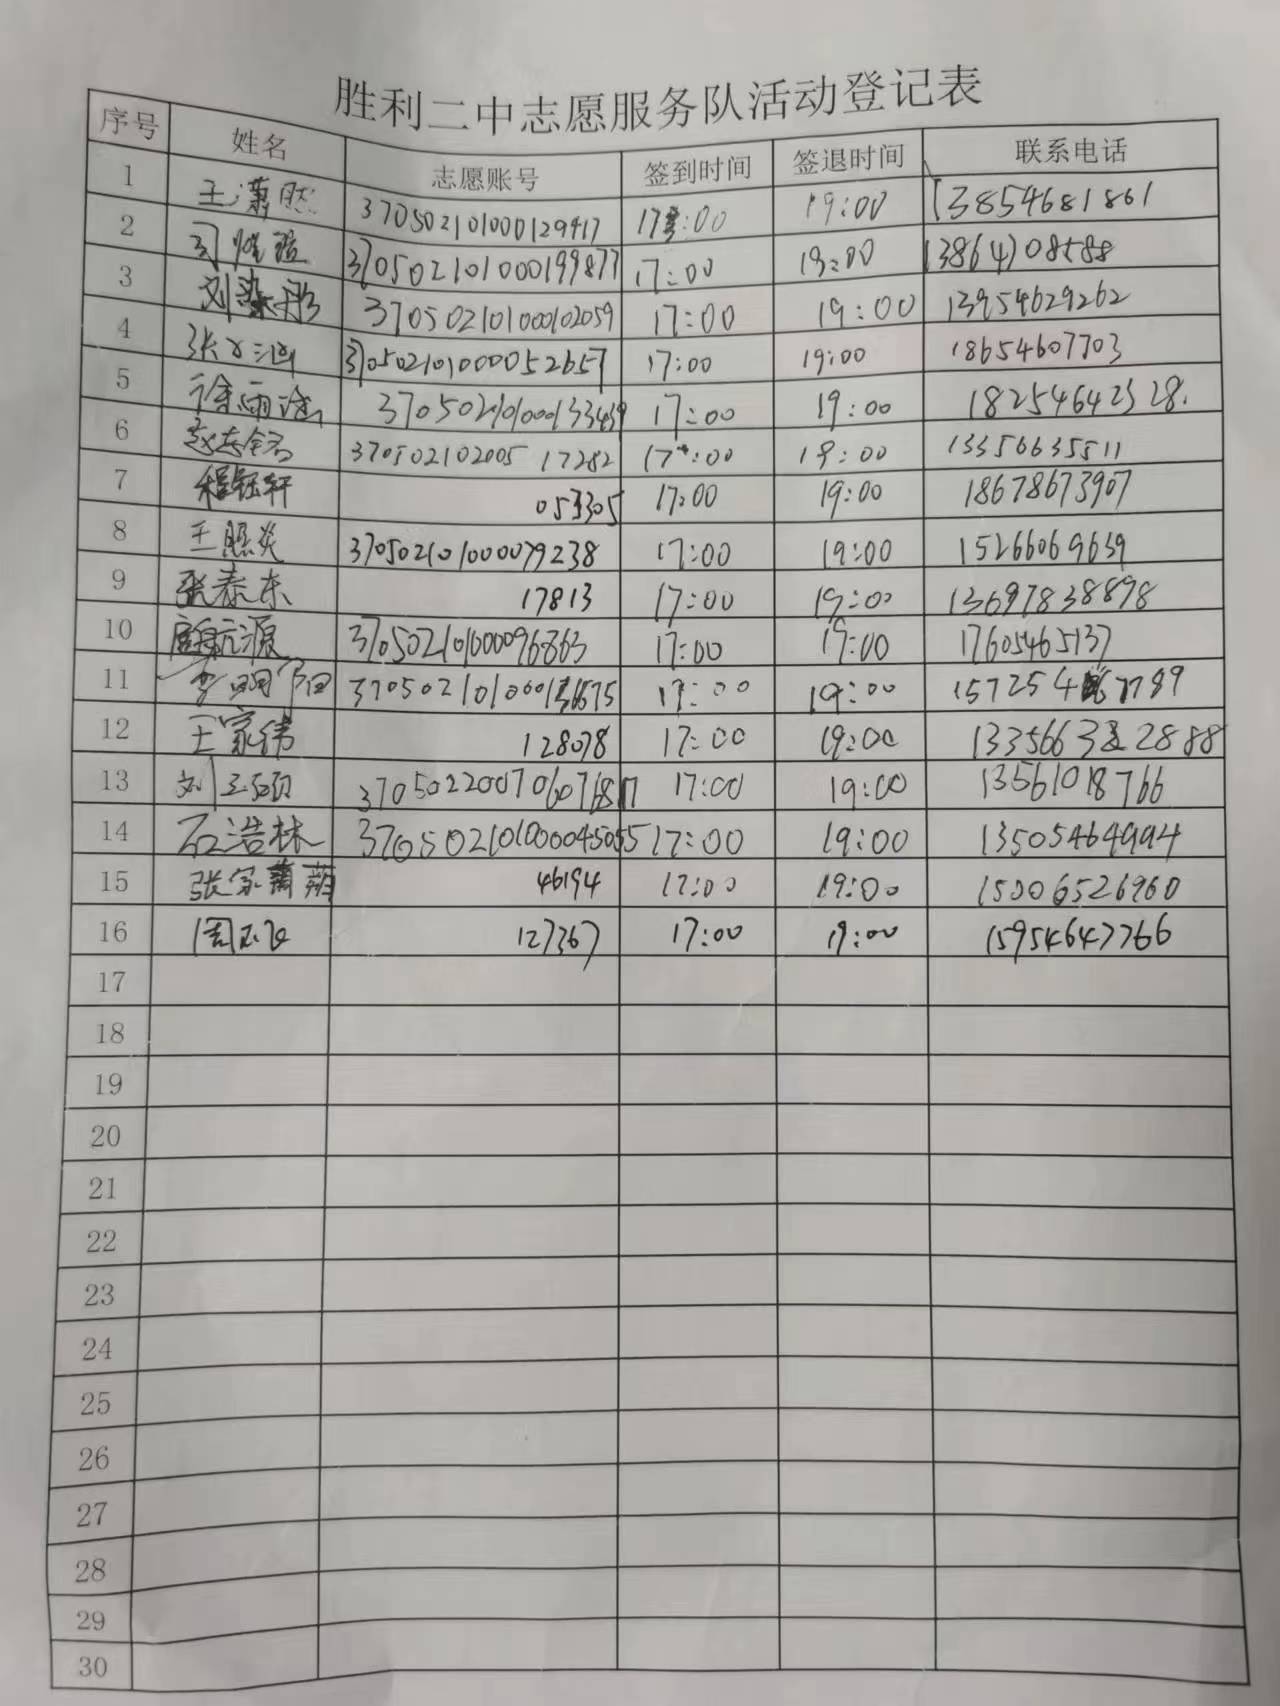 胜利二中志愿服务队活动登记表
序号 姓名 志愿账号 签到时间 签退时间 联系电话
1 王潇然 370502101000129417 17:00 19:00 13854681861
2 370502101000199877 17:00 19:00 13864708588
3 刘梁彤 370502101000102059 17:00 19:00 13954629262
4 370502101000052657 17:00 19:00 18654607703
5 徐雨涵 370502101000133439 17:00 19:00 18254642328.
6 370502102005 17282 17:00 19:00 13356635511
7 程钰轩 053305 17:00 19:00 18678673907
8 王照炎 370502101000079238 17:00 19:00 15266069639
9 张泰东 17813 17:00 19:00 13697838898
10 370502101000096863 17:00 19:00 17605465137
11 李 17:00 19:00
12 王家伟 128078 17:00 19:00
13 刘 17:00 19:00 13561018766
14 石浩林 370502101000045055 17:00 19:00 13505464994
15 张家萌 46194 17:00 19:00 15006526960
16 周 127367 17:00 19:00 15954647766
17
18
19
20
21
22
23
24
25
26
27
28
29
30